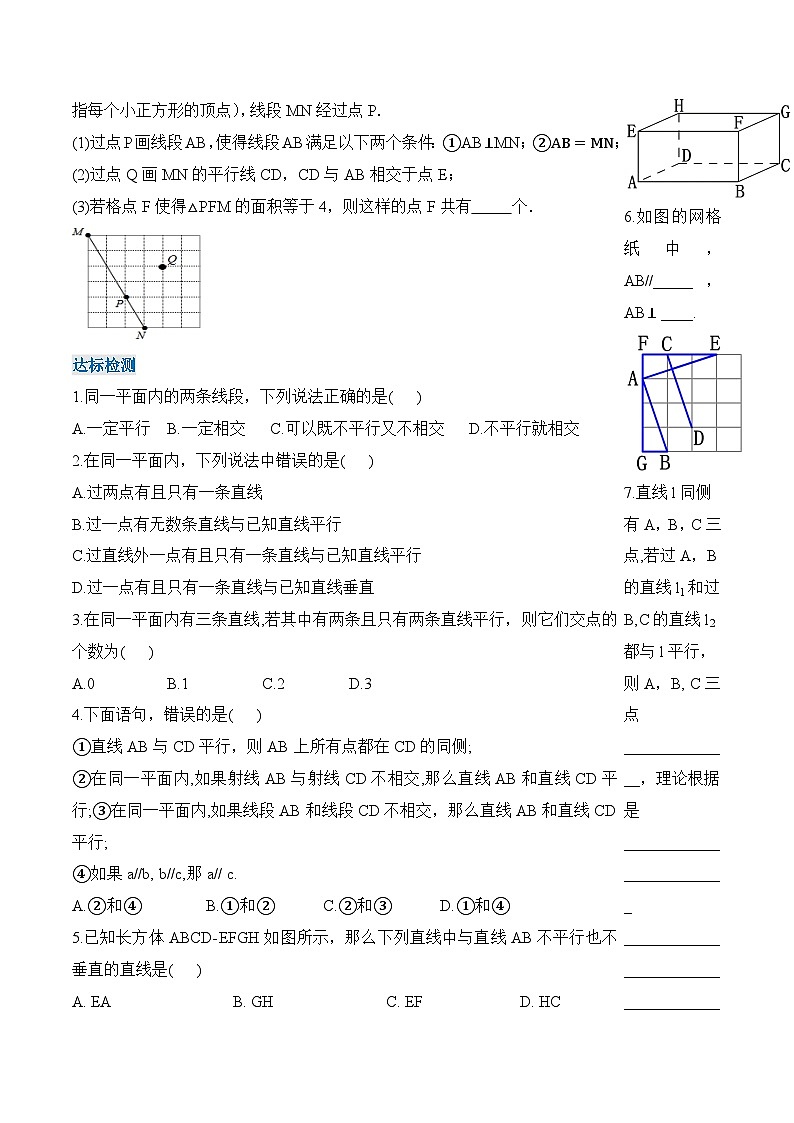 指每个小正方形的顶点),线段 MN 经过点 P.
(1)过点P画线段AB,使得线段AB满足以下两个条件: ①AB⊥MN; ②AB = MN;
(2)过点 Q 画 MN 的平行线 CD, CD 与 AB 相交于点 E;
(3)若格点 F 使得△PFM 的面积等于 4, 则这样的点 F 共有_____个.
M
Q
P
N
达标检测
1.同一平面内的两条线段, 下列说法正确的是( )
A.一定平行 B.一定相交 C.可以既不平行又不相交 D.不平行就相交
2.在同一平面内, 下列说法中错误的是( )
A.过两点有且只有一条直线
B.过一点有无数条直线与已知直线平行
C.过直线外一点有且只有一条直线与已知直线平行
D.过一点有且只有一条直线与已知直线垂直
3.在同一平面内有三条直线,若其中有两条且只有两条直线平行, 则它们交点的
个数为( )
A.0 B.1 C.2 D.3
4.下面语句, 错误的是( )
①直线 AB 与 CD 平行, 则 AB 上所有点都在 CD 的同侧;
②在同一平面内,如果射线 AB 与射线 CD 不相交,那么直线 AB 和直线 CD 平
行;③在同一平面内,如果线段 AB 和线段 CD 不相交, 那么直线 AB 和直线 CD
平行;
④如果 a//b, b//c,那 a// c.
A.②和④ B.①和② C.②和③ D.①和④
5.已知长方体 ABCD-EFGH 如图所示, 那么下列直线中与直线 AB 不平行也不
垂直的直线是( )
A. EA B. GH C. EF D. HC
H
G
E
F
D
C
A
B
6.如图的网格
纸中,
AB//_____ ,
AB⊥ ____.
F C E
A
D
G B
7.直线 l 同侧
有 A, B, C 三
点,若过 A, B
的直线 l₁ 和过
B,C 的直线 l₂
都与 l 平行,
则 A, B, C 三
点
____________
__, 理论根据
是
____________
____________
_
____________
____________
____________